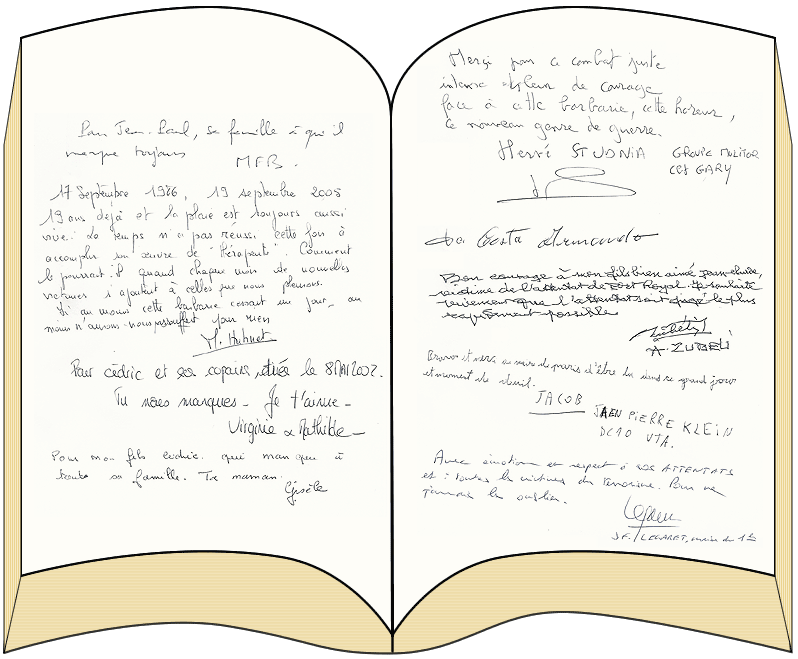 Pour Jean-Paul, sa famille à qui il
manque toujours
MFB.
17 Septembre 1986, 19 septembre 2005
19 ans déjà et la plaie est toujours aussi
vive. Le temps n'a pas réussi cette fois à
accomplir son œuvre de "thérapeute". Comment
le pourrait-il quand chaque mois de nouvelles
victimes s'ajoutent à celles que nous pleurons.
Si au moins cette barbarie cessait un jour, au
moins n'aurons-nous pas souffert pour rien
M. Huhnet
Pour cédric et ses copains, tués le 8 MAI 2002.
Tu nous manques - Je t'aime -
Virginie & Mathilde
Pour mon fils cedric qui manque à
toute sa famille. Ta maman.
Gisèle
Merci pour ce combat juste
intense et plein de courage
face à cette barbarie, cette horreur,
ce nouveau genre de guerre.
Hervé STUDNIA GROUPE MOLITOR
CES GARY
Da Costa Armando
Bon courage à mon fils bien aimé Jean-Claude,
victime de l'attentat de Port Royal. Je souhaite
vivement que l'attentat soit jugé le plus
rapidement possible
A. ZUBELI
Bravo et merci au maire de paris d'être là dans ce grand jour
et moment de deuil.
JACOB
JAEN PIERRE KLEIN
DC10 UTA.
Avec émotion et respect à SOS ATTENTATS
et à toutes les victimes du terrorisme. Pour ne
jamais les oublier.
Legaret
J.F. LEGARET, maire du 1er